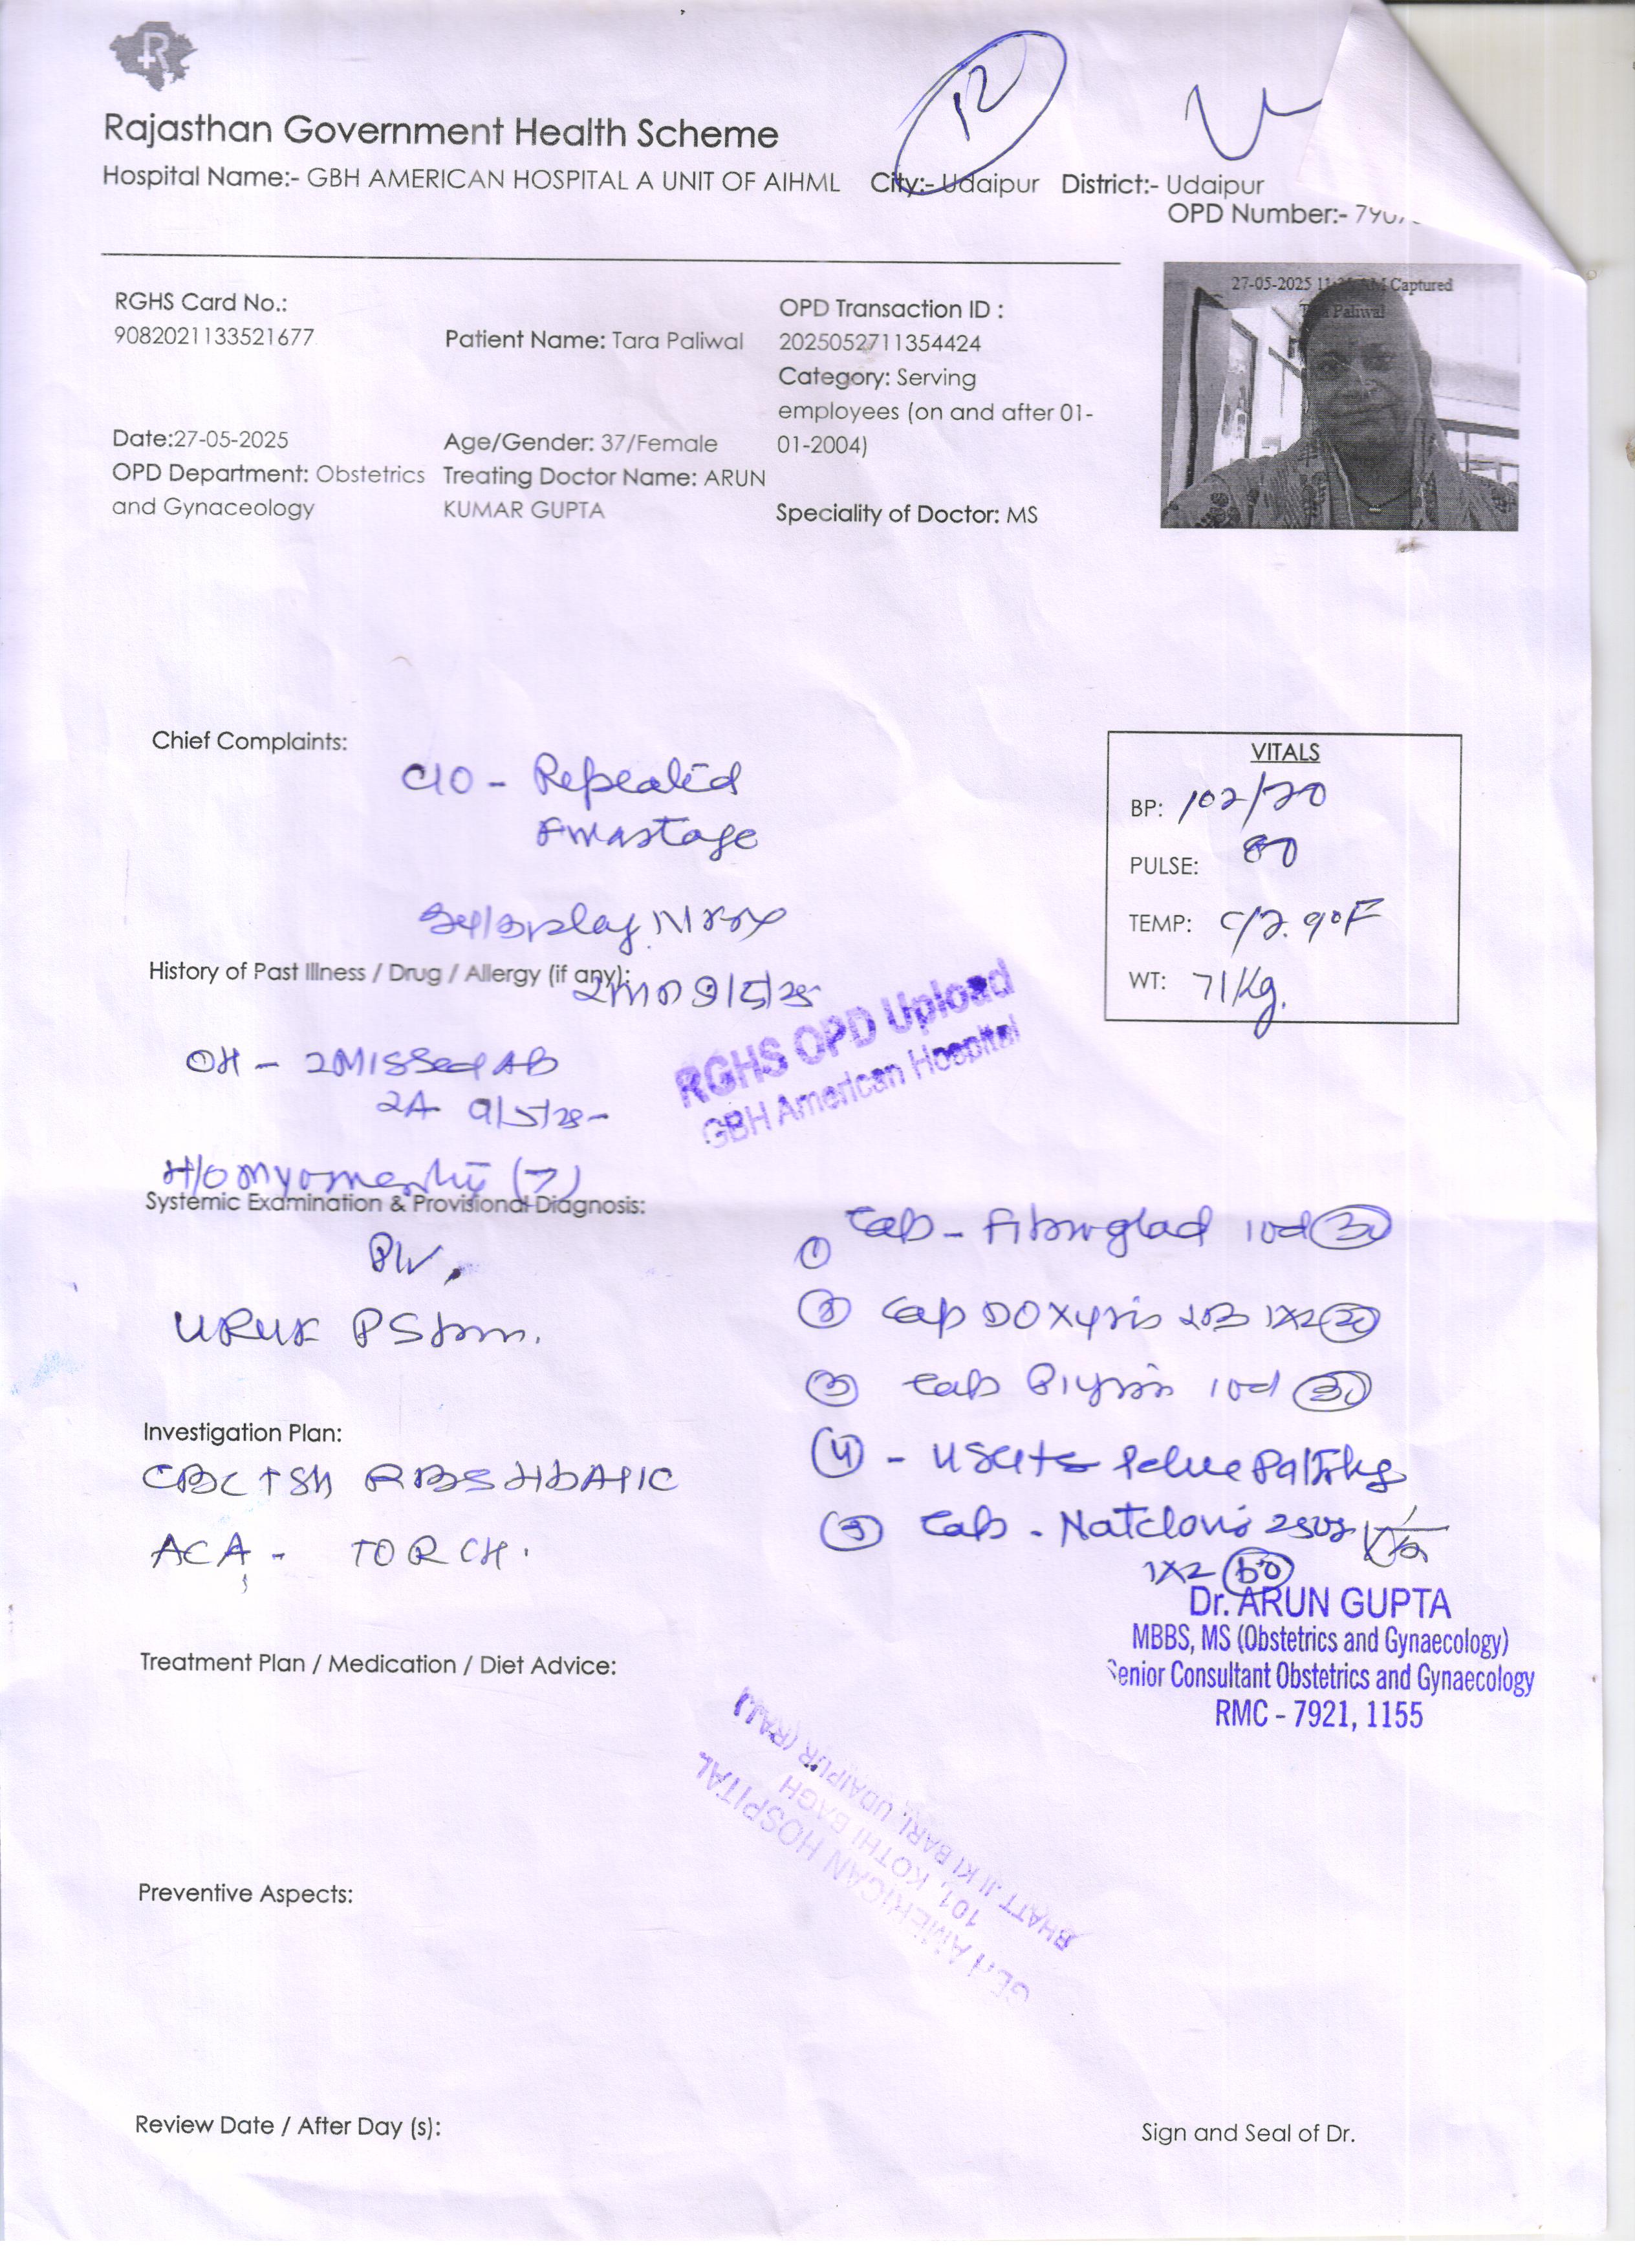 R
12
Rajasthan Government Health Scheme
Hospital Name:- GBH AMERICAN HOSPITAL A UNIT OF AIHML City:- Udaipur District:- Udaipur
OPD Number:- 790
27-05-2025 11: AM Captured
Tara Paliwal
RGHS Card No.:
9082021133521677
Patient Name: Tara Paliwal
OPD Transaction ID :
2025052711354424
Category: Serving
employees (on and after 01-
01-2004)
Date:27-05-2025
Age/Gender: 37/Female
OPD Department: Obstetrics
and Gynaceology
Treating Doctor Name: ARUN
KUMAR GUPTA
Speciality of Doctor: MS
Chief Complaints:
C/O - Repeated
VITALS
BP: 102/70
PULSE: 80
TEMP:
WT: 71Kg.
History of Past Illness / Drug / Allergy (if any):
9/5/25
OH - 2 Missed AB
9/5/25
H/O
RGHS OPD Upload
GBH American Hospital
Systemic Examination & Provisional Diagnosis:
PV,
① Tab - 10d 30
② Cap 1X2
③ Tab 10d 30
Investigation Plan:
CBC TSH RBS HbA1C
ACA - TORCH.
④ -
⑤ Tab -
1X2 60
Dr. ARUN GUPTA
MBBS, MS (Obstetrics and Gynaecology)
Senior Consultant Obstetrics and Gynaecology
RMC - 7921, 1155
Treatment Plan / Medication / Diet Advice:
GBH AMERICAN HOSPITAL
101, KOTHI BAGH
BHATT JI KI BARI, UDAIPUR (RAJ.)
Preventive Aspects:
Review Date / After Day (s):
Sign and Seal of Dr.